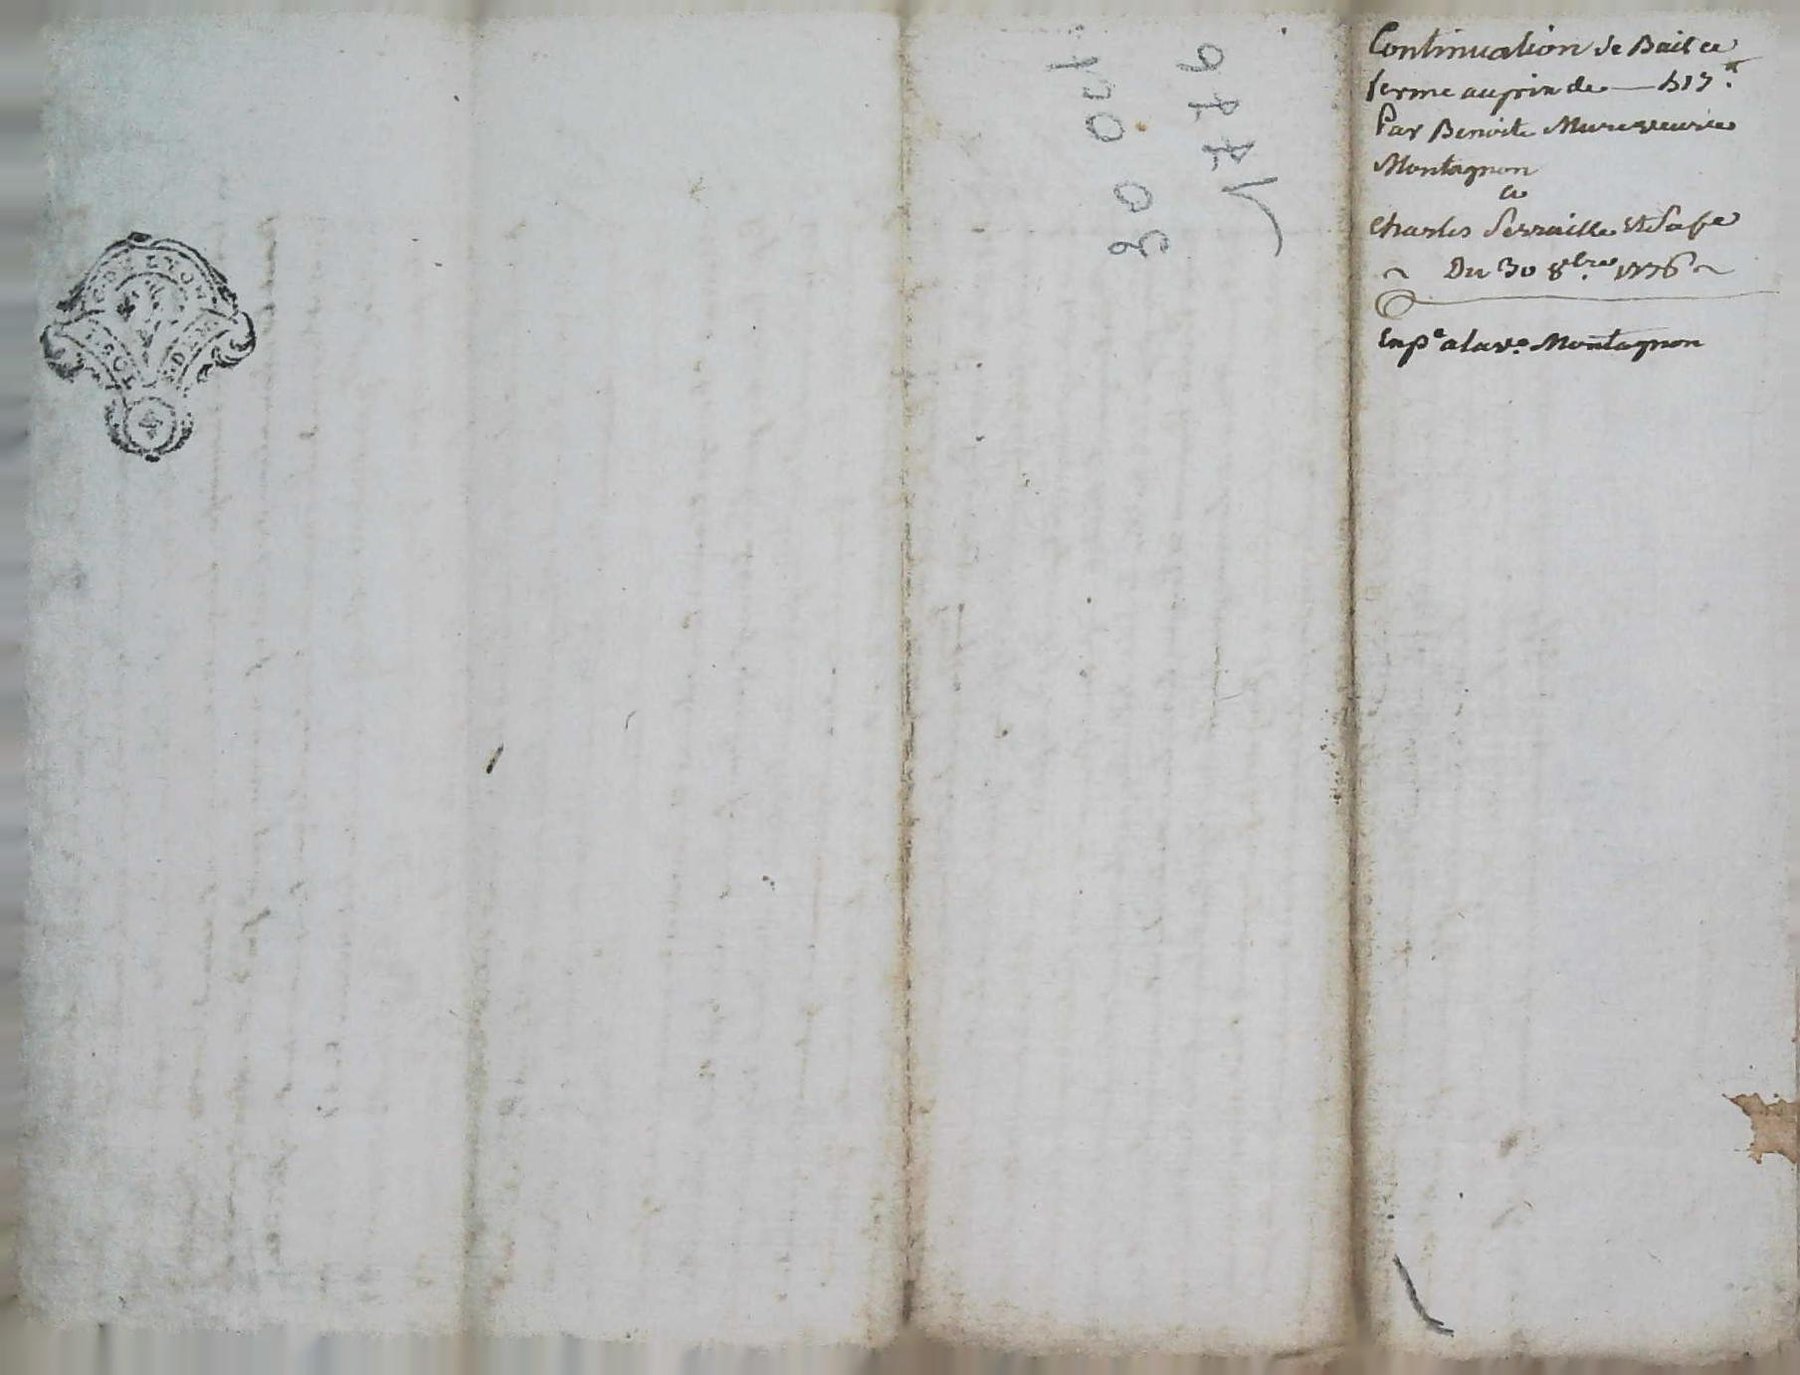 Continuation de Bail a
ferme au prix de — 517 #.
Par Benoite Mure veuve
Montagnon
a
Charles Serraille et Sa fe
~ Du 30 8bre 1776 ~
Expe a la ve Montagnon
30 Oct
1776